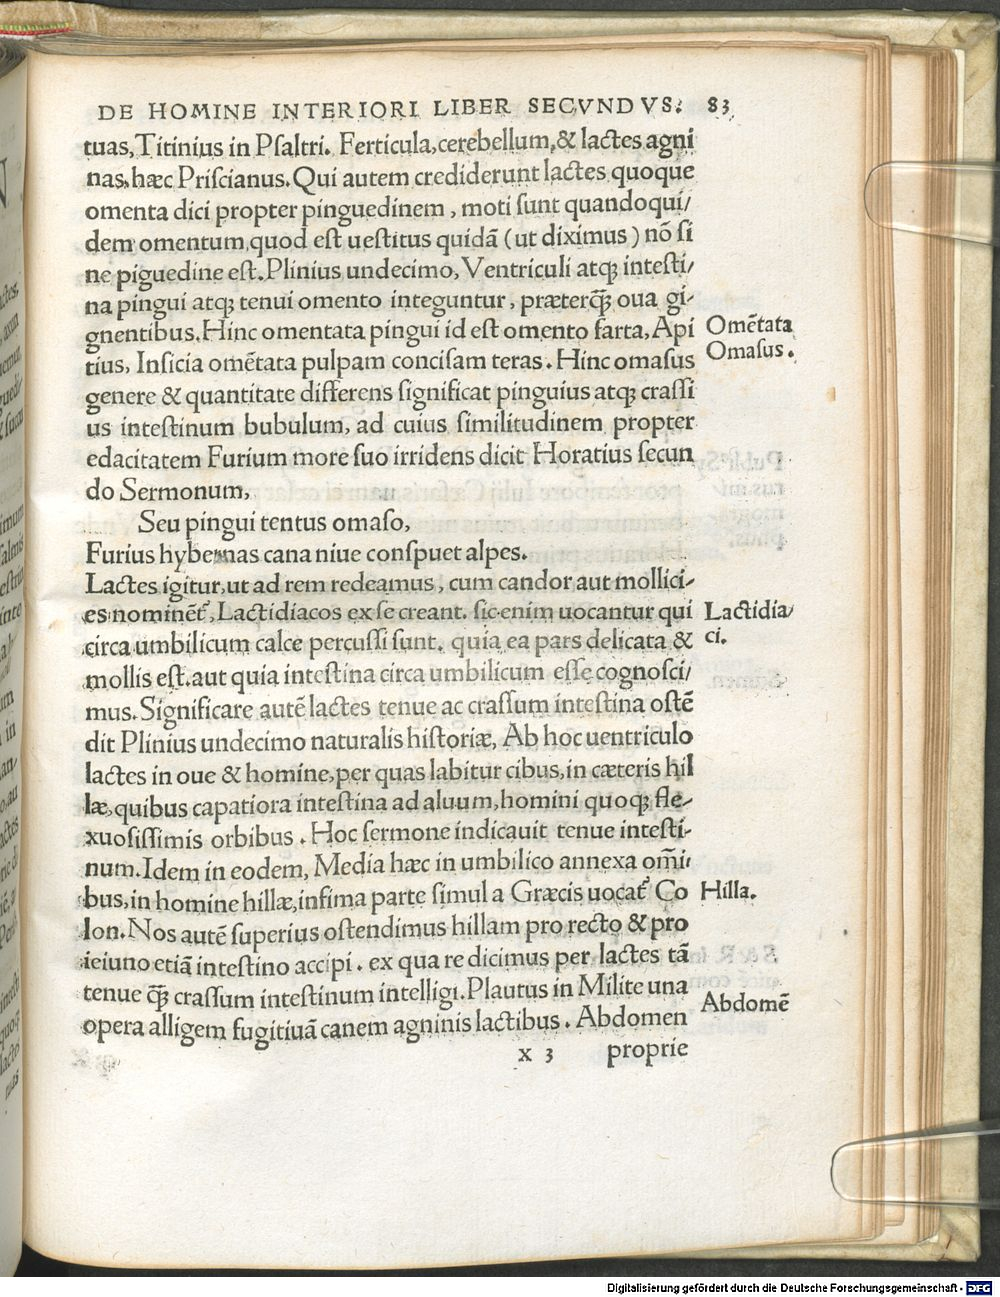 DE HOMINE INTERIORI LIBER SECVNDVS. 83
tuas, Titinius in Psaltri. Ferticula, cerebellum, & lactes agni
nas, hæc Priscianus. Qui autem crediderunt lactes quoque
omenta dici propter pinguedinem, moti sunt quandoqui/
dem omentum, quod est uestitus quidã (ut diximus) nõ si
ne piguedine est. Plinius undecimo, Ventriculi atqꝫ intesti/
na pingui atqꝫ tenui omento integuntur, præterqꝫ̃ oua gi/
gnentibus. Hinc omentata pingui id est omento farta, Api
Omẽtata
tius, Insicia omẽtata pulpam concisam teras. Hinc omasus
Omasus.
genere & quantitate differens significat pinguius atqꝫ crassi
us intestinum bubulum, ad cuius similitudinem propter
edacitatem Furium more suo irridens dicit Horatius secun
do Sermonum,
Seu pingui tentus omaso,
Furius hybernas cana niue conspuet alpes.
Lactes igitur, ut ad rem redeamus, cum candor aut mollici/
es nominẽt᷑, Lactidiacos ex se creant. sic enim uocantur qui
Lactidia/
circa umbilicum calce percussi sunt. quia ea pars delicata &
ci.
mollis est. aut quia intestina circa umbilicum esse cognosci/
mus. Significare autẽ lactes tenue ac crassum intestina ostẽ
dit Plinius undecimo naturalis historiæ, Ab hoc uentriculo
lactes in oue & homine, per quas labitur cibus, in cæteris hil
læ, quibus capatiora intestina ad aluum, homini quoqꝫ fle/
xuosissimis orbibus. Hoc sermone indicauit tenue intesti/
num. Idem in eodem, Media hæc in umbilico annexa om̃i/
bus, in homine hillæ, infima parte simul a Græcis uocat᷑ Co
Hilla.
lon. Nos autẽ superius ostendimus hillam pro recto & pro
ieiuno etiã intestino accipi. ex qua re dicimus per lactes tã
tenue qꝫ̃ crassum intestinum intelligi. Plautus in Milite una
Abdomẽ
opera alligem fugitiuã canem agninis lactibus. Abdomen
x 3 proprie
Digitalisierung gefördert durch die Deutsche Forschungsgemeinschaft - DFG